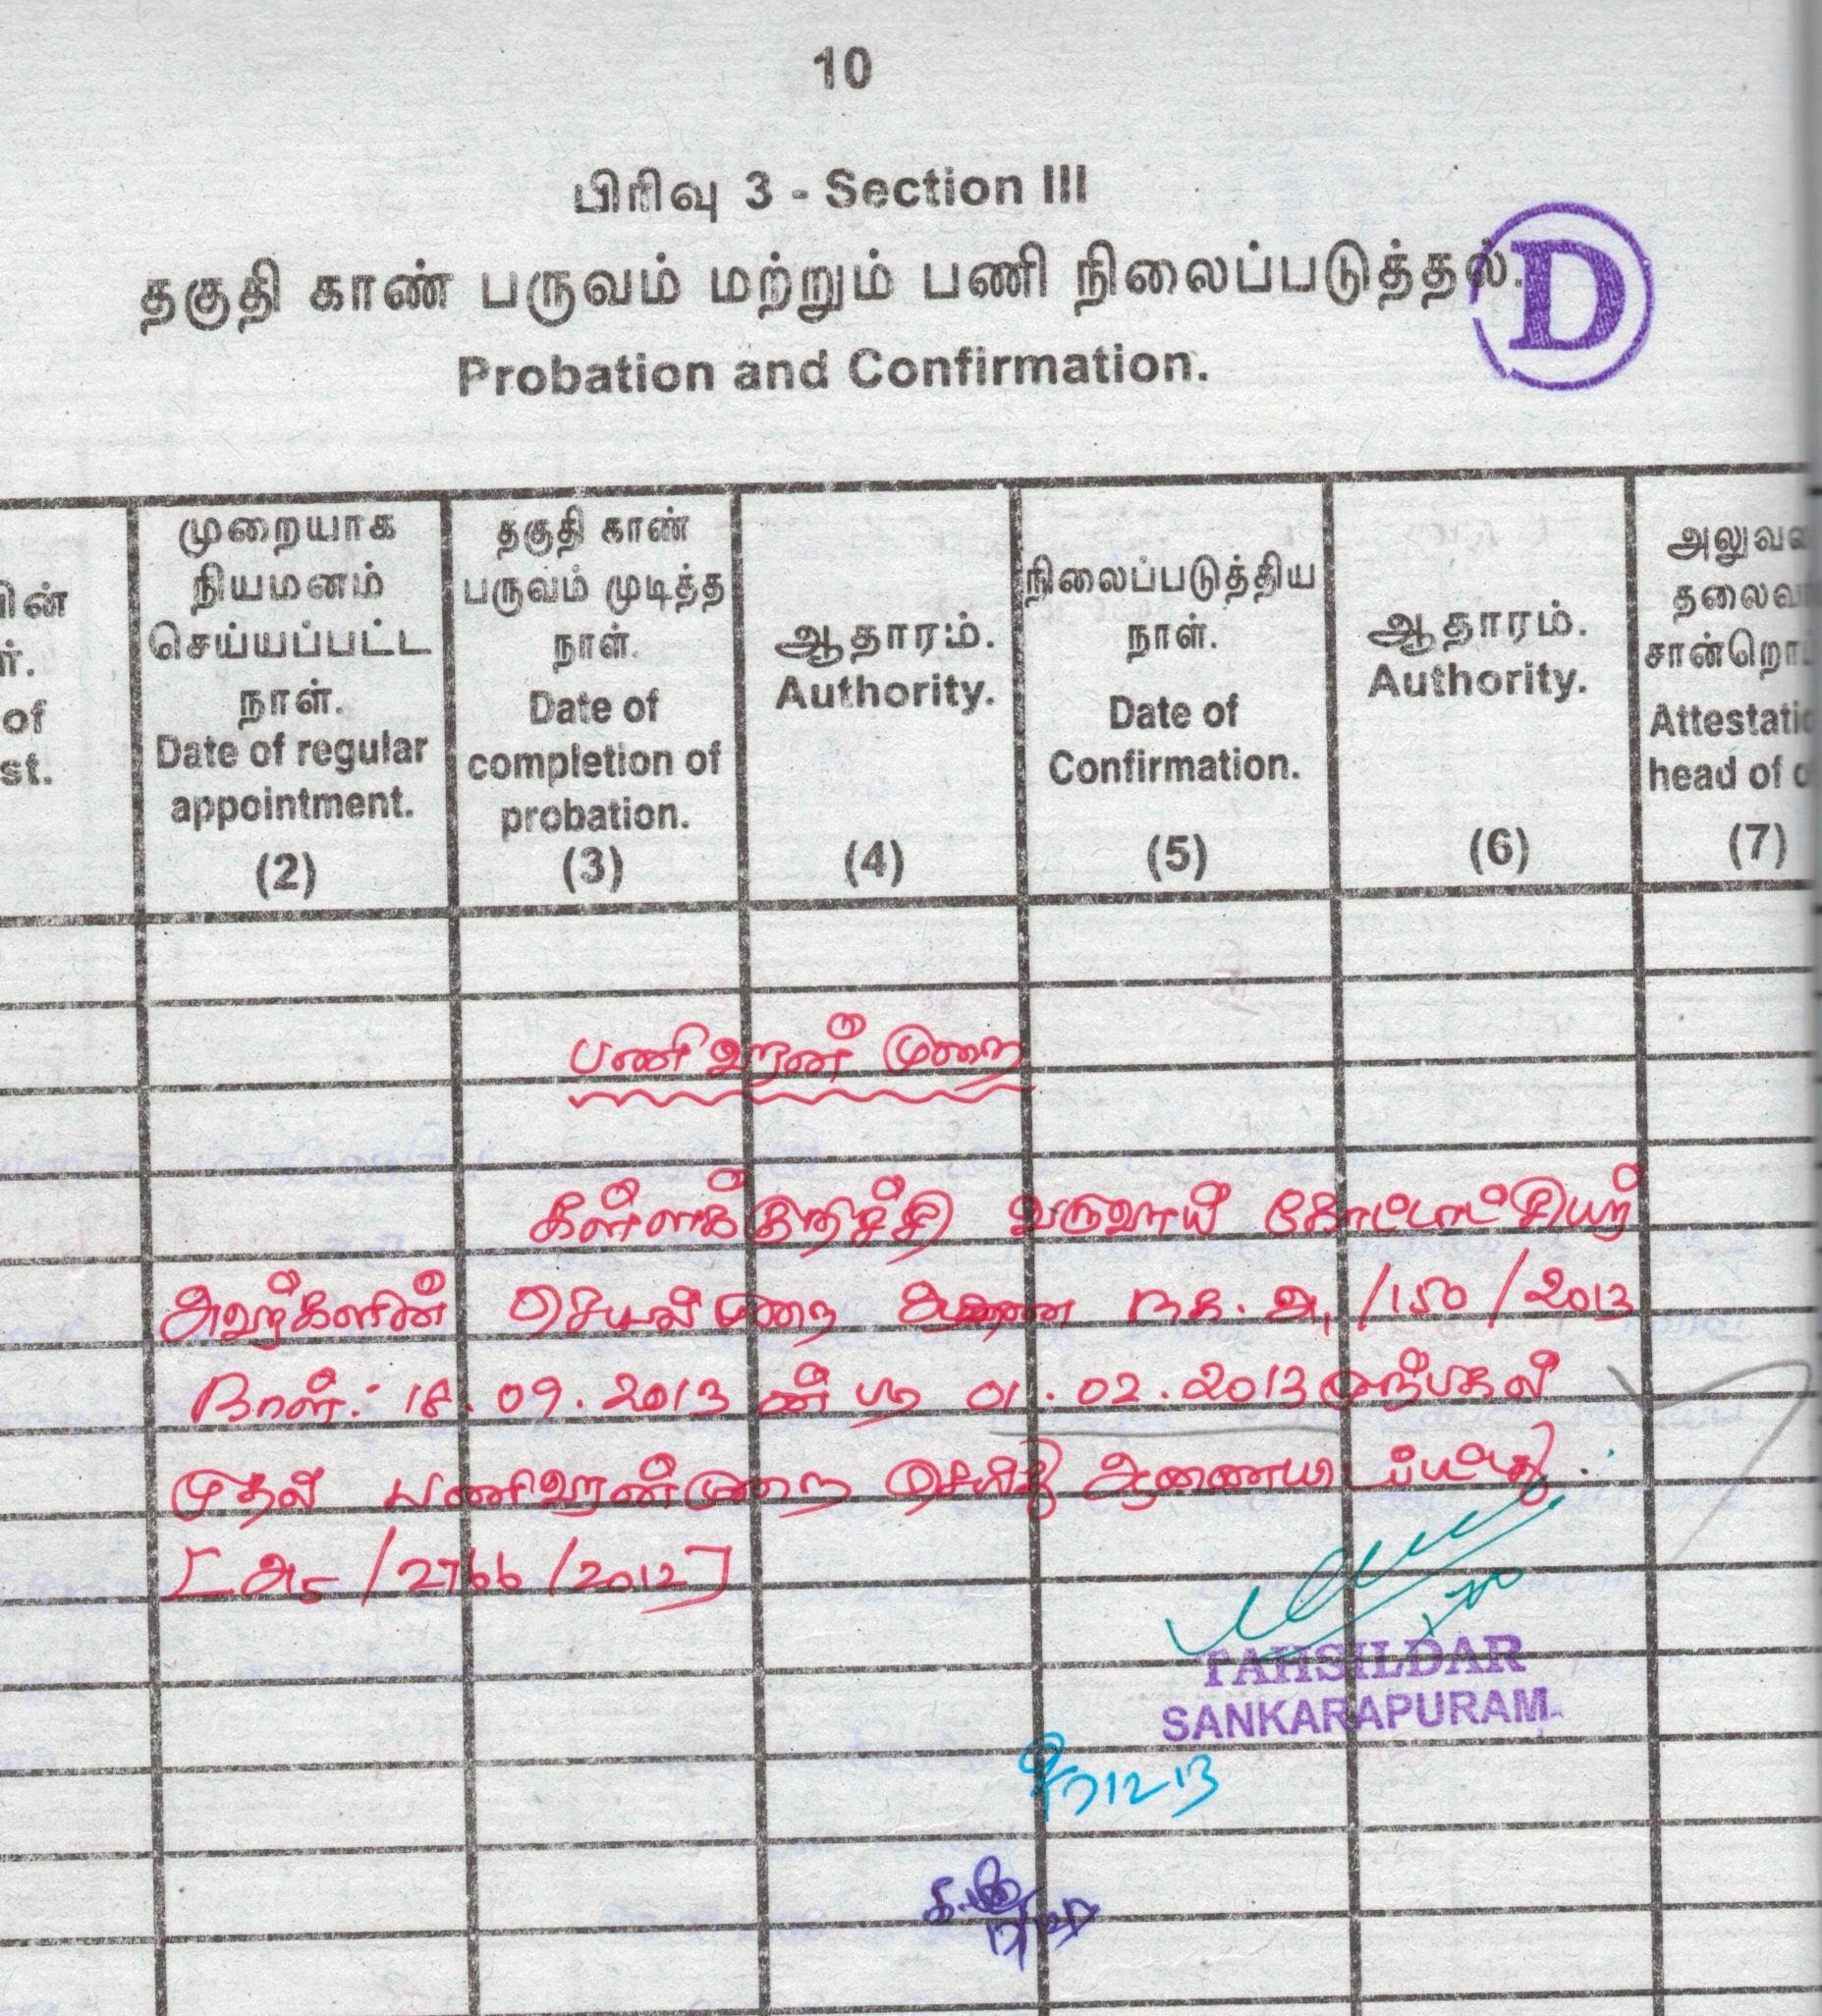 10
பிரிவு 3 - Section III
தகுதி காண் பருவம் மற்றும் பணி நிலைப்படுத்தல்.
D
Probation and Confirmation.
ின்
ர்.
of
st.
முறையாக
நியமனம்
செய்யப்பட்ட
நாள்.
Date of regular
appointment.
(2)
தகுதி காண்
பருவம் முடித்த
நாள்.
Date of
completion of
probation.
(3)
ஆதாரம்.
Authority.
(4)
நிலைப்படுத்திய
நாள்.
Date of
Confirmation.
(5)
ஆதாரம்.
Authority.
(6)
அலுவல
தலைவ
சான்றொ
Attestatio
head of o
(7)
பணி வரன் முறை
கள்ளக்குறிச்சி வருவாய் கோட்டாட்சியர்
அவர்களின் செயல்முறை ஆணை ந.க. அ1/150/2013
நாள்: 18.09.2013 ன் படி 01.02.2013 முற்பகல்
முதல் பணிவரன்முறை செய்து ஆணையிடப்பட்டது.
[அ5/2766/2012]
TAHSILDAR
SANKARAPURAM.